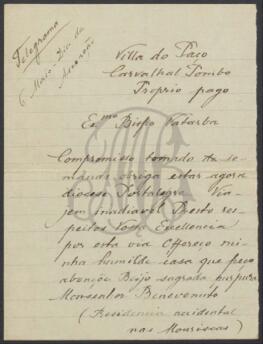 Telegrama
6 Maio - Dia da
Ascensão
Villa do Paço
Carvalhal Pombo
Proprio pago
Exmo Bispo Vatarba
Compromisso tomado da se-
mana obriga estar agora
diocese Portalegre Via-
jem inadiavel Presto res-
peitos Vossa Excellencia
por esta via Offereço mi-
nha humilde casa que peço
abenção Beijo sagrada purpura
Monsenhor Benevenuto
(Residencia accidental
nas Mouriscas)